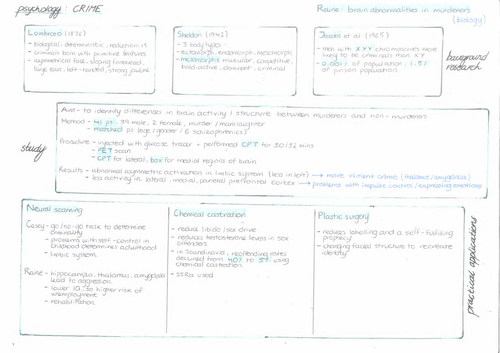 psychology: CRIME
Raine: brain abnormalities in murderers
(biology)
Lombroso (1876)
- biological, deterministic, reductionist
- criminals born with primitive features
- asymmetrical face, sloping forehead,
large ears, left-handed, strong
Sheldon (1942)
- 3 body types:
- ectomorph, endomorph, mesomorph
- mesomorphs muscular, competitive,
dominant, criminal
Jacobs et al (1965)
- men with XYY chromosomes more
likely to be criminals than XY
- 0.001% of population, 1.5%
of prison population
background
research
study
Aim - to identify differences in brain activity / structure between murderers and non-murderers
Method - 41 ps: 39 male, 2 female, murder / manslaughter
- matched ps (age/gender/6 schizophrenics)
Procedure - injected with glucose tracer - performed CPT for 30/32 mins
- PET scan
- CPT for lateral, box for medial regions of brain
Results - abnormal asymmetric activation in limbic system (less in left) → more violent crime (thalamus/amygdala)
- less activity in lateral, medial, prefrontal cortex → problems with impulse control / expressing emotions
Neural scanning
Casey - go/no-go task to determine
- problems with self-control in
childhood determines adulthood
- limbic system
Raine - hippocampus, thalamus, amygdala
lead to aggression
- lower IQ so higher risk of
unemployment
- rehabilitation
Chemical castration
- reduce libido / sex drive
- reduces testosterone levels in sex
offenders
- in Scandinavia, reoffending rates
decreased from 40% to 5% using
chemical castration
- SSRIs used
Plastic surgery
- reduces labelling and a self-fulfilling
prophecy
- changing facial structure to recreate
identity
practical applications